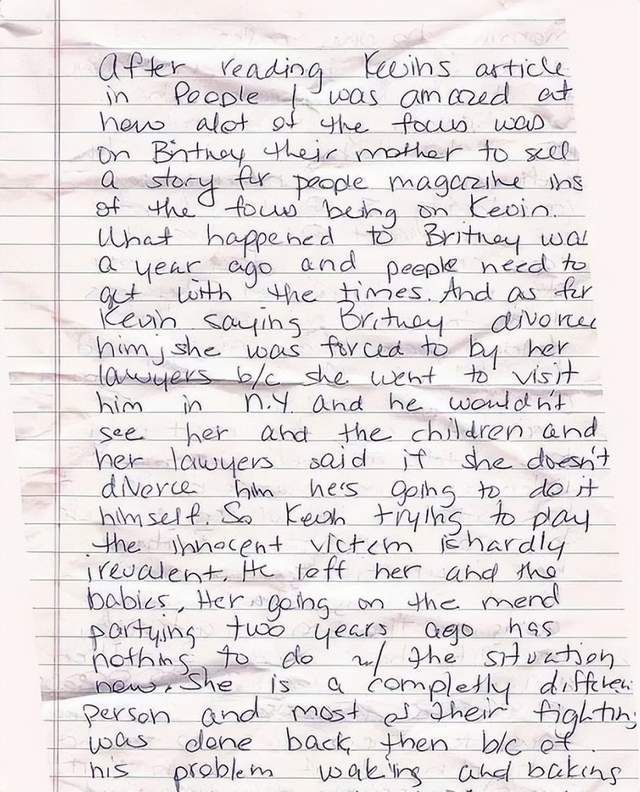 After reading Kevins article
in People I was amazed at
how alot of the focus was
on Britney their mother to sell
a story for people magazine ins
of the focus being on Kevin.
What happened to Britney was
a year ago and people need to
get with the times. And as for
Kevin saying Britney divorce
him, she was forced to by her
lawyers b/c she went to visit
him in N.Y. and he wouldn't
see her and the children and
her lawyers said if she doesn't
divorce him he's going to do it
himself. So Kevin trying to play
the innocent victim is hardly
irevalent. He left her and the
babies, Her going on the mend
partying two years ago has
nothing to do w/ the situation
now. She is a completly differen
person and most of their fighting
was done back then b/c of
his problem waking and baking